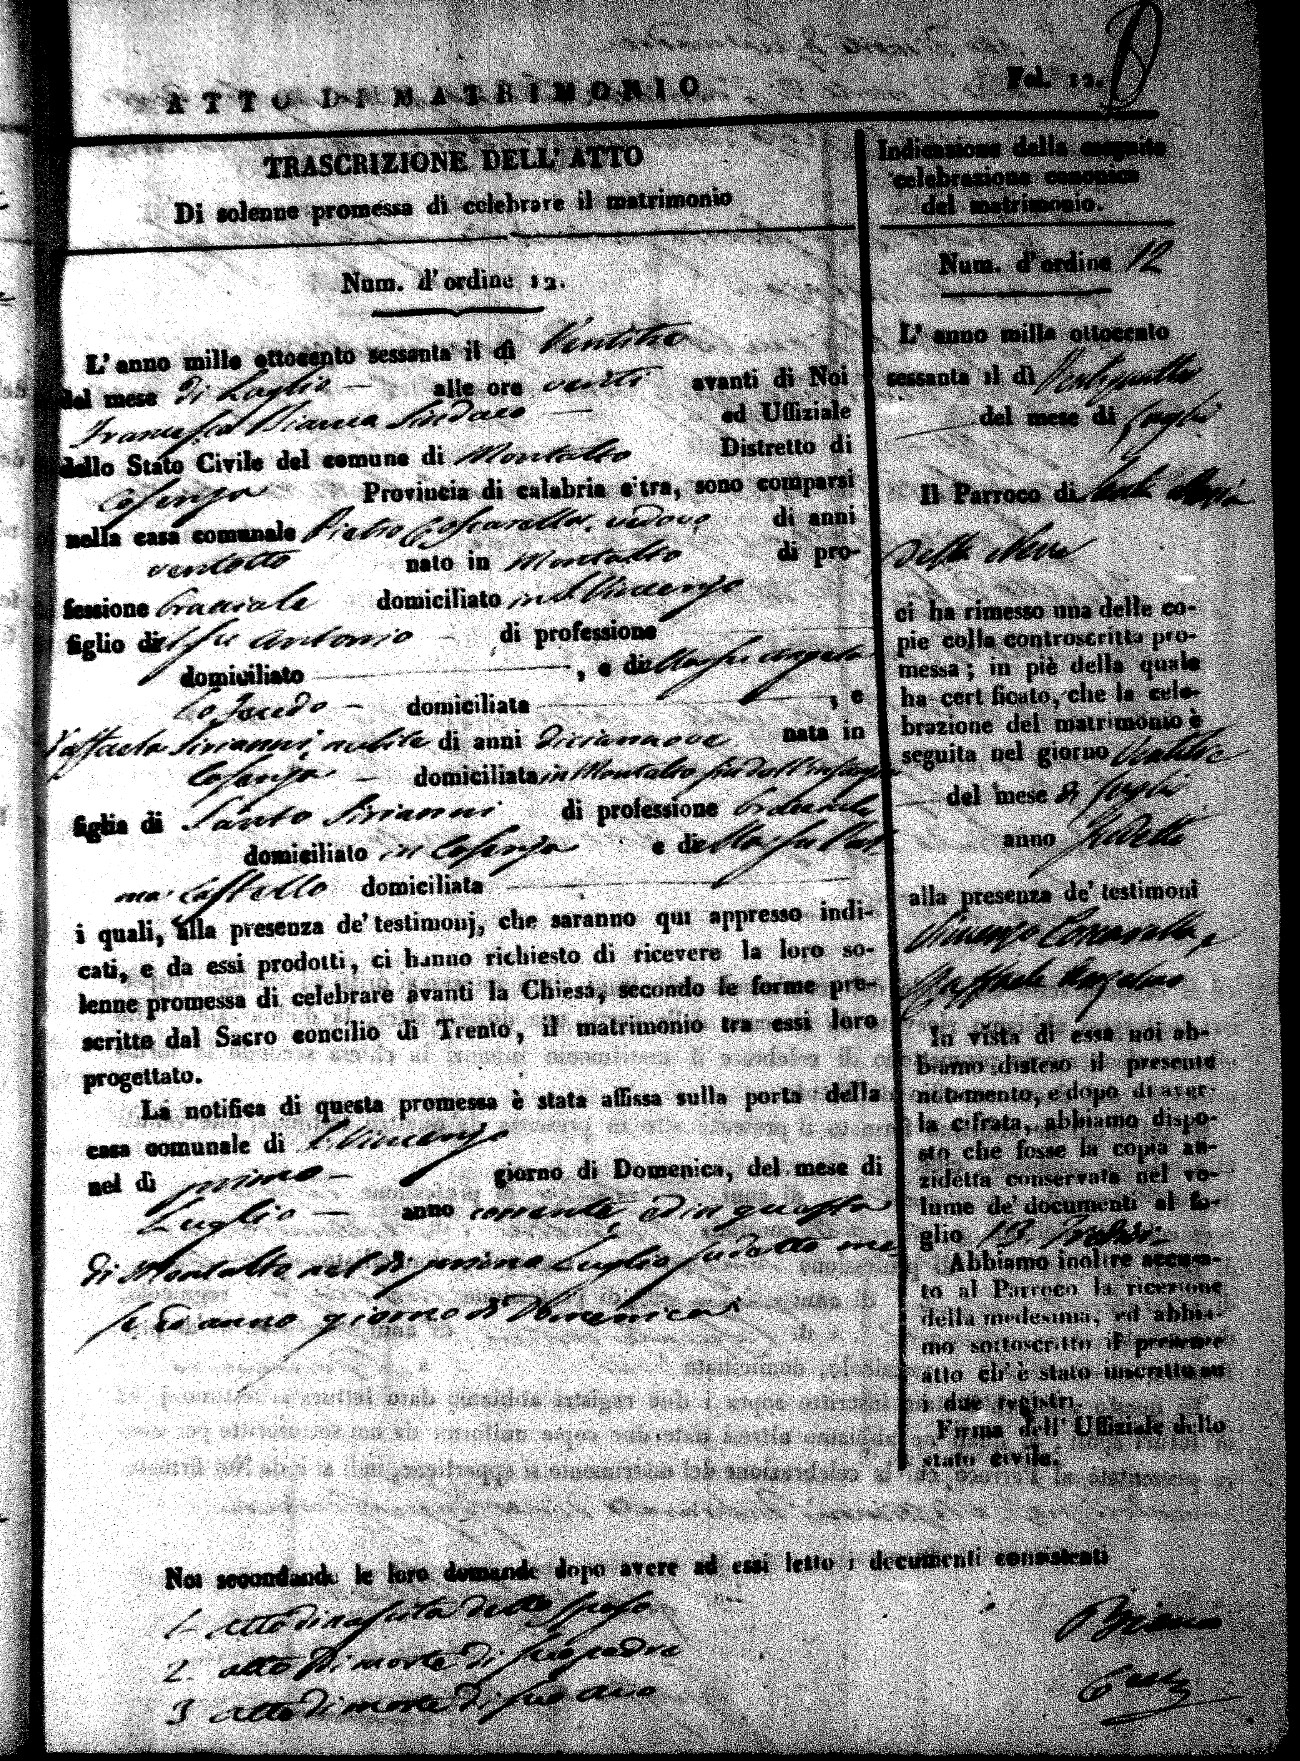 Fol. 12.
ATTO DI MATRIMONIO
TRASCRIZIONE DELL' ATTO
Di solenne promessa di celebrare il matrimonio
Num. d'ordine 12.
L'anno mille ottocento sessanta il dì Ventitre
del mese di Luglio — alle ore venti avanti di Noi
Francesco Bianca Sindaco — ed Uffiziale
dello Stato Civile del comune di Montalto Distretto di
Cosenza Provincia di calabria citra, sono comparsi
nella casa comunale Pietro Coscarella, vedovo di anni
ventotto nato in Montalto di pro-
fessione bracciale domiciliato in S. Vincenzo
figlio di fu Antonio — di professione
domiciliato , e di fu Angela
domiciliata , e
Raffaela Sirianni, nubile di anni diciannove nata in
Cosenza — domiciliata in Montalto fin dall'infanzia
figlia di Santo Sirianni di professione
domiciliato in Cosenza e della fu
domiciliata
i quali, alla presenza de' testimonj, che saranno qui appresso indi-
cati, e da essi prodotti, ci hanno richiesto di ricevere la loro so-
lenne promessa di celebrare avanti la Chiesa, secondo le forme pre-
scritte dal Sacro concilio di Trento, il matrimonio tra essi loro
progettato.
La notifica di questa promessa è stata affissa sulla porta della
casa comunale di S. Vincenzo
nel dì primo — giorno di Domenica, del mese di
Luglio — anno corrente, ed in questa
di Montalto nel dì primo Luglio sudetto me
se ed anno giorno di Domenica
Indicazione della seguita
celebrazione canonica
del matrimonio.
Num. d'ordine 12
L'anno mille ottocento
sessanta il dì Ventiquattro
del mese di Luglio
Il Parroco di Santa Maria
della Neve
ci ha rimesso una delle co-
pie colla controscritta pro-
messa; in piè della quale
ha certificato, che la cele-
brazione del matrimonio è
seguita nel giorno Ventitre
del mese di Luglio
anno sudetto
alla presenza de' testimoni
Vincenzo Coscarella, e
Raffaele
In vista di essa noi ab-
biamo disteso il presente
notamento, e dopo di aver-
la cifrata, abbiamo dispo-
sto che fosse la copia an-
zidetta conservata nel vo-
lume de' documenti al fo-
glio 13
Abbiamo inoltre accusa-
to al Parroco la ricezione
della medesima, ed abbia-
mo sottoscritto il presente
atto ch' è stato inscritto su
i due registri.
Firma dell' Uffiziale dello
stato civile.
Noi secondando le loro domande dopo avere ad essi letto i documenti consistenti
1. atto di nascita dello sposo
2. atto di morte di suo padre
3 atto di morte di suo avo
Bianca